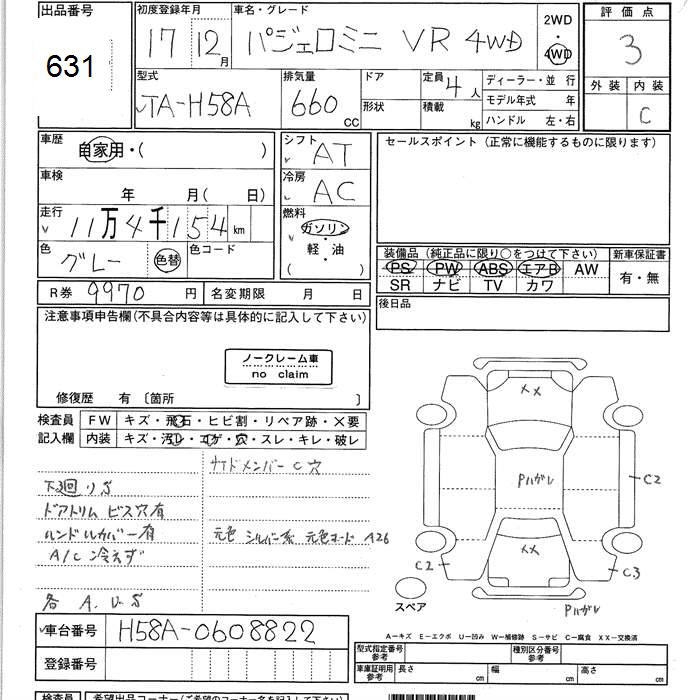 出品番号
631
初度登録年月
17 12月
車名・グレード
パジェロミニ VR 4WD
2WD
・
4WD
評価点
3
外装 内装
C
型式
TA-H58A
排気量
660 CC
ドア
形状
定員 4人
積載 kg
ディーラー・並行
モデル年式 年
ハンドル 左・右
車歴
自家用・( )
車検
年 月( 日)
走行
11万4千154 km
色
グレー 色替
色コード
シフト
AT
冷房
AC
燃料
ガソリン
・
軽・油
( )
セールスポイント (正常に機能するものに限ります)
装備品 (純正品に限り○をつけて下さい)
PS PW ABS エアB AW
SR ナビ TV カワ
新車保証書
有・無
R券 9970 円
名変期限 月 日
後日品
注意事項申告欄(不具合内容等は具体的に記入して下さい)
ノークレーム車
no claim
修復歴 有 〔箇所 〕
検査員
記入欄
FW キズ・飛石・ヒビ割・リペア跡・×要
内装 キズ・汚レ・コゲ・穴・スレ・キレ・破レ
サイドメンバー C 穴
下廻りS
ドアトリム ビス穴有
ハンドルカバー有
A/C 冷えず
元色 シルバー系 元色コード A26
各 A.U.S
XX
Pハガレ
C2
XX
C2
C3
Pハガレ
スペア
A-キズ E-エクボ U-凹み W-補修跡 S-サビ C-腐食 XX-交換済
車台番号 H58A-0608822
登録番号
型式指定番号
参考
種別区分番号
参考
車庫証明用
参考
長さ cm
幅 cm
高さ cm
検査員
希望出品コーナー(ご希望のコーナー名を記入下さい)